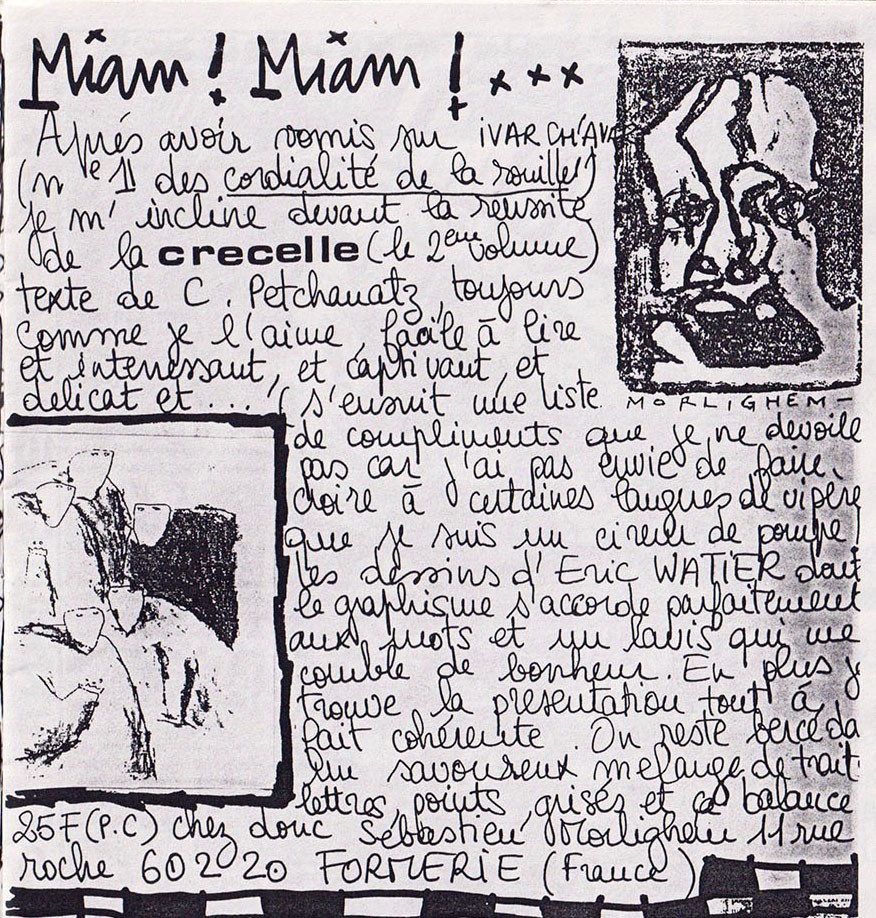 Miam ! Miam ! ...
Aprés avoir vomis sur IVAR CH'AVA
(n e 11 des cordialité de la rouille)
je m' incline devant la reussite
de la crecelle (le 2eme volume)
texte de C. Petchanatz, toujours
comme je l'aime, facile à lire
et interressant, et captivant, et
delicat et ... (s'ensuit une liste
MORLIGHEM -
de compliments que je ne devoile
pas car j'ai pas envie de faire
croire à certaines langues de vipère
que je suis un cireur de pompe)
les dessins d'Eric WATIER dont
le graphisme s'accorde parfaitement
aux mots et un lavis qui me
comble de bonheur. En plus j
trouve la presentation tout à
fait cohérente. On reste bercé da
un savoureux melange de trait
lettres, points, grisés et ça balance
25F (P.C) chez donc Sébastien Morlighem 11 rue
roche 60220 FORMERIE (France)